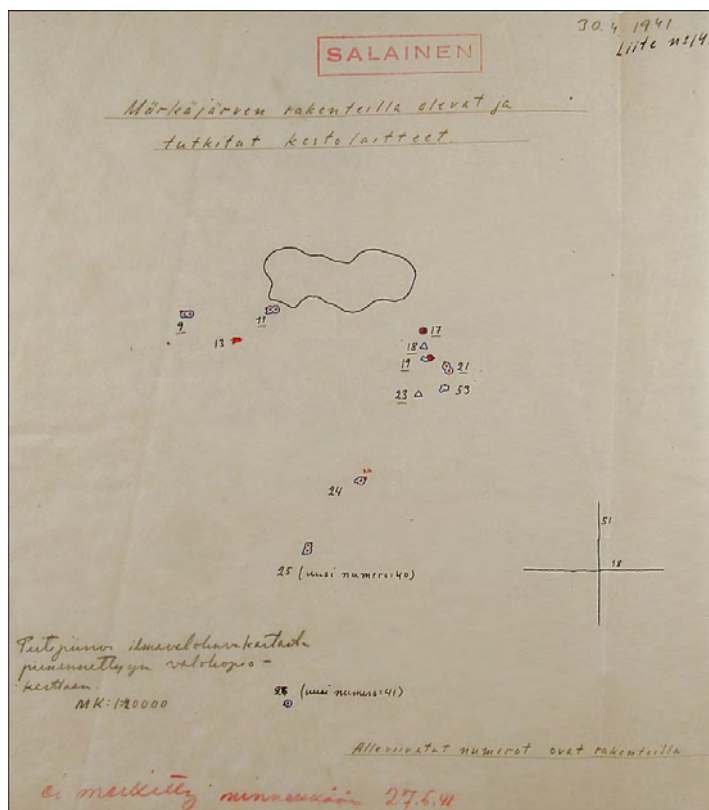 30.4 1941
SALAINEN
Märkäjärven rakenteilla olevat ja
tutkitut kestolaitteet.
9
11
13
17
18
19
21
23
53
24
25 (uusi numero: 40)
51
18
Peitepiirros ilmavalokuvakartasta
pienennettyyn valokopio-
karttaan.
MK: 1:20000
26 (uusi numero: 41)
Alleviivatut numerot ovat rakenteilla
ei merkitty minnekään 27.5.41